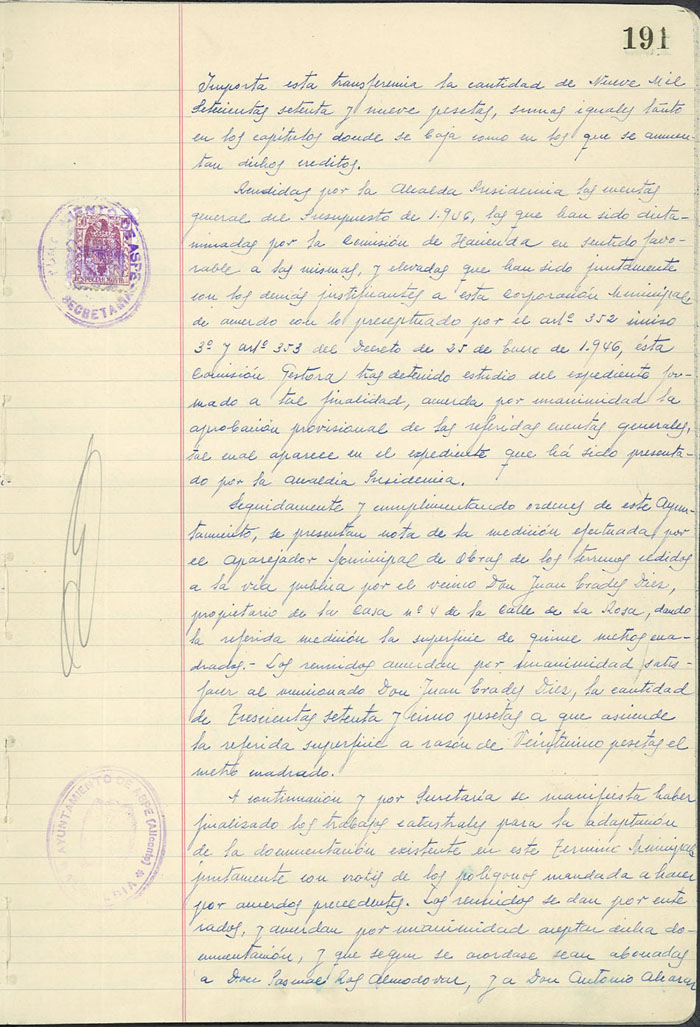 191
Importa esta transferencia la cantidad de Nueve Mil
Setecientas setenta y nueve pesetas, sumas iguales tanto
en los capítulos donde se baja como en los que se aumen-
tan dichos creditos.
Rendidas por la Alcaldía Presidencia las cuentas
general del Presupuesto de 1.946, las que han sido dicta-
minadas por la Comisión de Hacienda en sentido favo-
rable a las mismas, y elevadas que han sido juntamente
con los demás justificantes a esta Corporación Municipal
de acuerdo con lo preceptuado por el artº 352 inciso
3º y artº 353 del Decreto de 25 de Enero de 1.946, ésta
Comisión Gestora tras detenido estudio del expediente for-
mado a tal finalidad, acuerda por unanimidad la
aprobación provisional de las referidas cuentas generales,
tal cual aparece en el expediente que há sido presenta-
do por la Alcaldía Presidencia.
Seguidamente y cumplimentando ordenes de este Ayun-
tamiento, se presentan nota de la medición efectuada por
el Aparejador Municipal de Obras de los terrenos cedidos
a la vía publica por el vecino Don Juan Erades Diez,
propietario de la Casa nº 4 de la Calle de La Rosa, dando
la referida medición la superficie de quince metros cua-
drados.- Los reunidos acuerdan por unanimidad satis-
facer al mencionado Don Juan Erades Diez, la cantidad
de Trescientas setenta y cinco pesetas a que asciende
la referida superficie a razón de Veinticinco pesetas el
metro cuadrado.
A continuación y por Secretaría se manifiesta haber
finalizado los trabajos catastrales para la adaptación
de la documentación existente en este Termino Municipal
juntamente con de los poligonos mandada a hacer
por acuerdos precedentes. Los reunidos se dan por ente
rados, y acuerdan por unanimidad aceptar dicha do-
cumentación, y que segun se acordase sean abonadas
a Don Pascual Ros Almodovar, y a Don Antonio Alcaraz
AYUNTAMIENTO DE ASPE
SECRETARIA
AYUNTAMIENTO DE ASPE (Alicante)